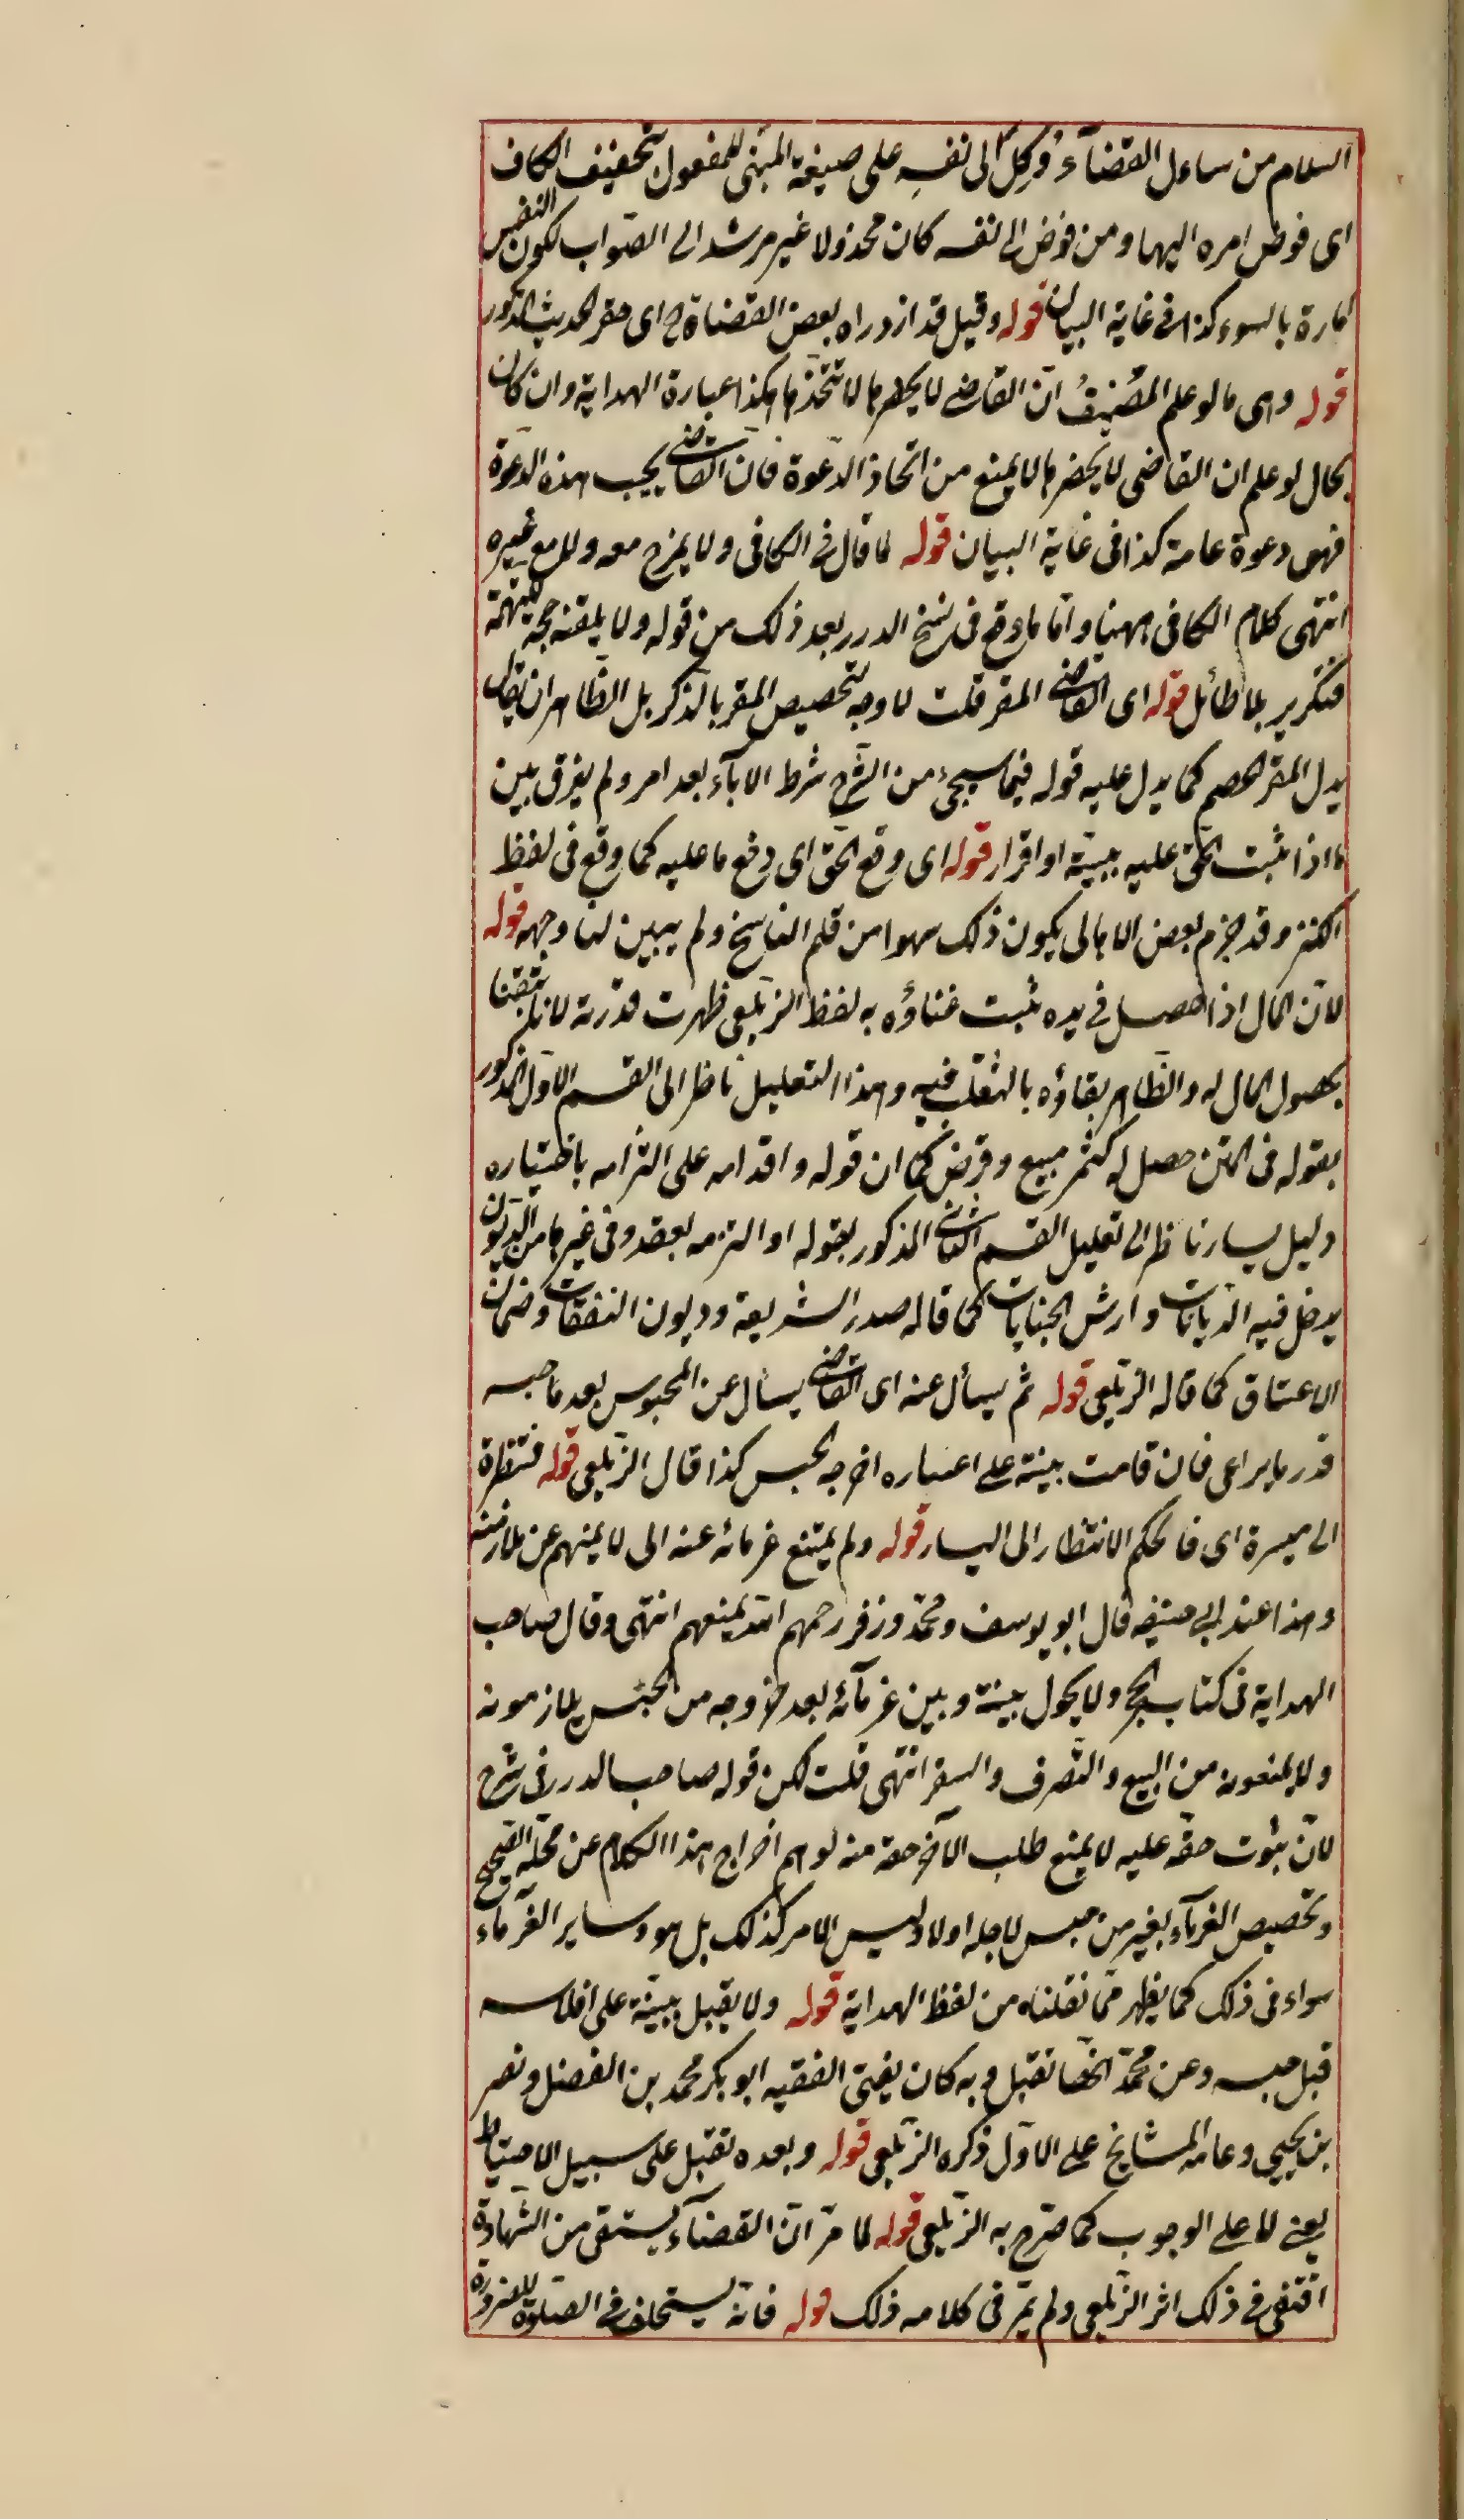 السلام من سأل القضآء وُكِلَ الى نفسِه على صيغة المبنى للمفعول بتخفيف الكاف
اى فوض امره اليها ومن فوض الى نفسه كان مخذولا غير مرشد الى الصّواب لكون النفس
امارة بالسوء كذا فى غاية البيان قوله وقيل قد ازدراه بعض القضاة اى حقر الحديث المذكور
قوله وهى ما لو علم المضيفُ انّ القاضى لا يحضرها لا يتخذها هكذا عبارة الهداية وان كان
بحال لو علم ان القاضى لا يحضرها لا يمنع من اتخاذ الدّعوة فان القاضى يجيب هذه الدعوة
فهى دعوة عامة كذا فى غاية البيان قوله لما قال فى الكافى ولا يمزح معه ولا مع غيره
انتهى كلام الكافى ههنا وامّا ما وقع فى نسخ الدرر بعد ذلك من قوله ولا يلقنه حجة للتهمة
فتكرير بلا طائل قوله اى القاضى المقر قلت لا وجه لتخصيص المقر بالذكر بل الظّاهر ان يقال
بدل المقر الخصم كما يدل عليه قوله فيما سيجئ من الشّرح شرط الابآء بعد امر ولم يفرق بين
ما اذا ثبت الحق عليه ببيّنة او اقرار قوله اى وقع الحق اى دفع ما عليه كما وقع فى لفظ
الكنز وقد جزم بعض الاهالى بكون ذلك سهوا من قلم الناسخ ولم يبين لنا وجهه قوله
لانّ المال اذا حصل فى يده ثبت غناؤه به لفظ الزيلعى ظهرت قدرته لانا تيقنا
بحصول المال له والظّاهر بقاؤه بالتقلّب فيه وهذا التعليل ناظر الى القسم الاوّل المذكور
بقوله فى المتن حصل له كثمن مبيع وقرض كما ان قوله واقدامه على التزامه باختياره
دليل يساره ناظر الى تعليل القسم الثانى المذكور بقوله او التزمه بعقد وفى غيرها من الدّيون
يدخل فيه الدّيات وارش الجنايات كما قاله صدر الشريعة وديون النفقات وضمان
الاعتاق كما قاله الزيلعى قوله ثم يسأل عنه اى القاضى يسأل عن المحبوس بعد ما حبسه
قدر ما يراعى فان قامت بينة على اعساره اخرجه الحبس كذا قال الزيلعى قوله فنظرة
الى ميسرة اى فالحكم الانتظار الى اليسار قوله ولم يمنع غرمائه عنه اى لا يمنعهم عن ملازمته
وهذا عند ابى حنيفه قال ابو يوسف ومحمّد وزفر رحمهم الله يمنعهم انتهى وقال صاحب
الهداية فى كتاب الحجر ولا يحول بينه وبين غرمآئه بعد خروجه من الحبس يلازمونه
ولا يمنعونه من البيع والتّصرف والسفر انتهى قلت لكن قوله صاحب الدرر فى شرح
لانّ ثبوت حقّه عليه لا يمنع طلب الآخر حقه منه لوهم اخراج هذا الكلام عن محله الصّحيح
وتخصيص الغرمآء بغير من حبس لاجله اولا وليس الامر كذلك بل هو وساير الغرمآء
سواء فى ذلك كما يظهر ممّا نقلناه من لفظ الهداية قوله ولا يقبل ببيّنة على افلاسه
قبل حبسه وعن محمّد انها تقبل وبه كان يفتى الفقيه ابو بكر محمد بن الفضل ونصر
بن يحيى وعامة المشايخ على الاوّل ذكره الزّيلعى قوله وبعده تقبل على سبيل الاحتياط
يعنى لا على الوجوب كما صرّح به الزّيلعى قوله لما مرّ انّ القضآء يستقى من الشّهادة
اقتفى فى ذلك اثر الزّيلعى ولم يمرّ فى كلامه ذلك قوله فانّه يستخلف فى الصّلوة للضرورة